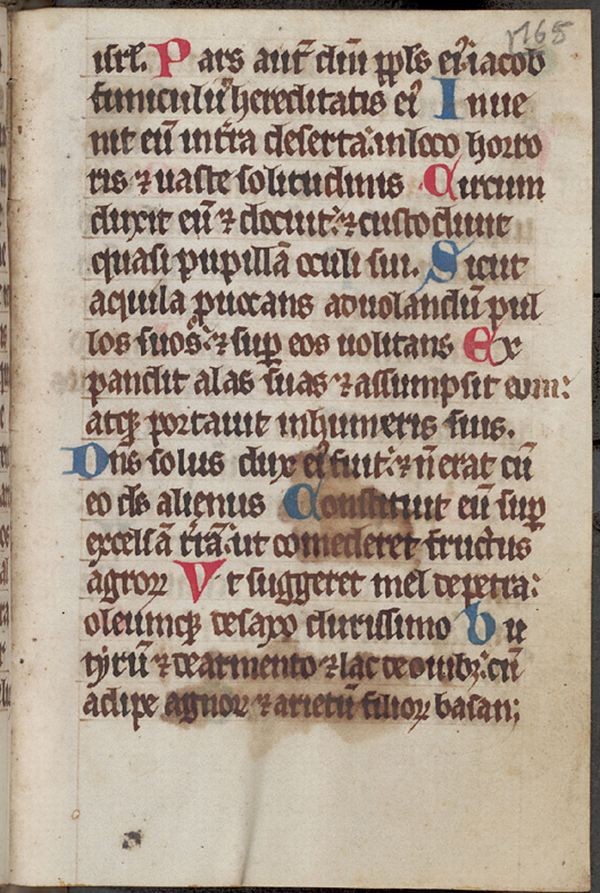 1765
isrl̄. Pars aut̄ dn̄i ppl̄s eiꝰ iacob
funiculꝰ hereditatis eiꝰ Inue
nit eū in tr̄a deserta: in loco horro
ris ⁊ uaste solitudinis Circum
duxit eū ⁊ docuit: ⁊ custodiuit
quasi pupillā oculi sui. Sicut
aquila ꝓuocans ad uolandū pul
los suos: ⁊ suꝑ eos uolitans Ex
pandit alas suas ⁊ assumpsit eum:
atqꝫ portauit in humeris suis.
Dn̄s solus dux eiꝰ fuit: ⁊ nō erat cū
eo ds̄ alienus Constituit eū suꝑ
excelsā tr̄ā: ut comederet fructus
agroꝝ Vt suggeret mel de petra:
oleumqꝫ de saxo durissimo bu
tyrū ⁊ de armento ⁊ lac de ouibꝫ: cū
adipe agnoꝝ ⁊ arietū filioꝝ basan;